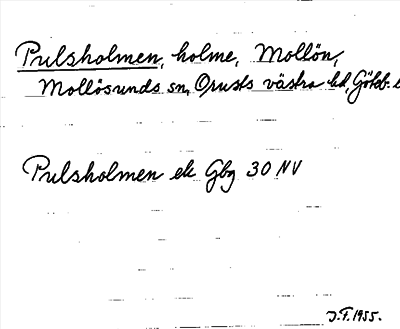 Pulsholmen, holme, Mollön,
Mollösunds sn, Orusts västra hd, Göteb.
Pulsholmen ek Gbg 30 NV
J.F. 1955.